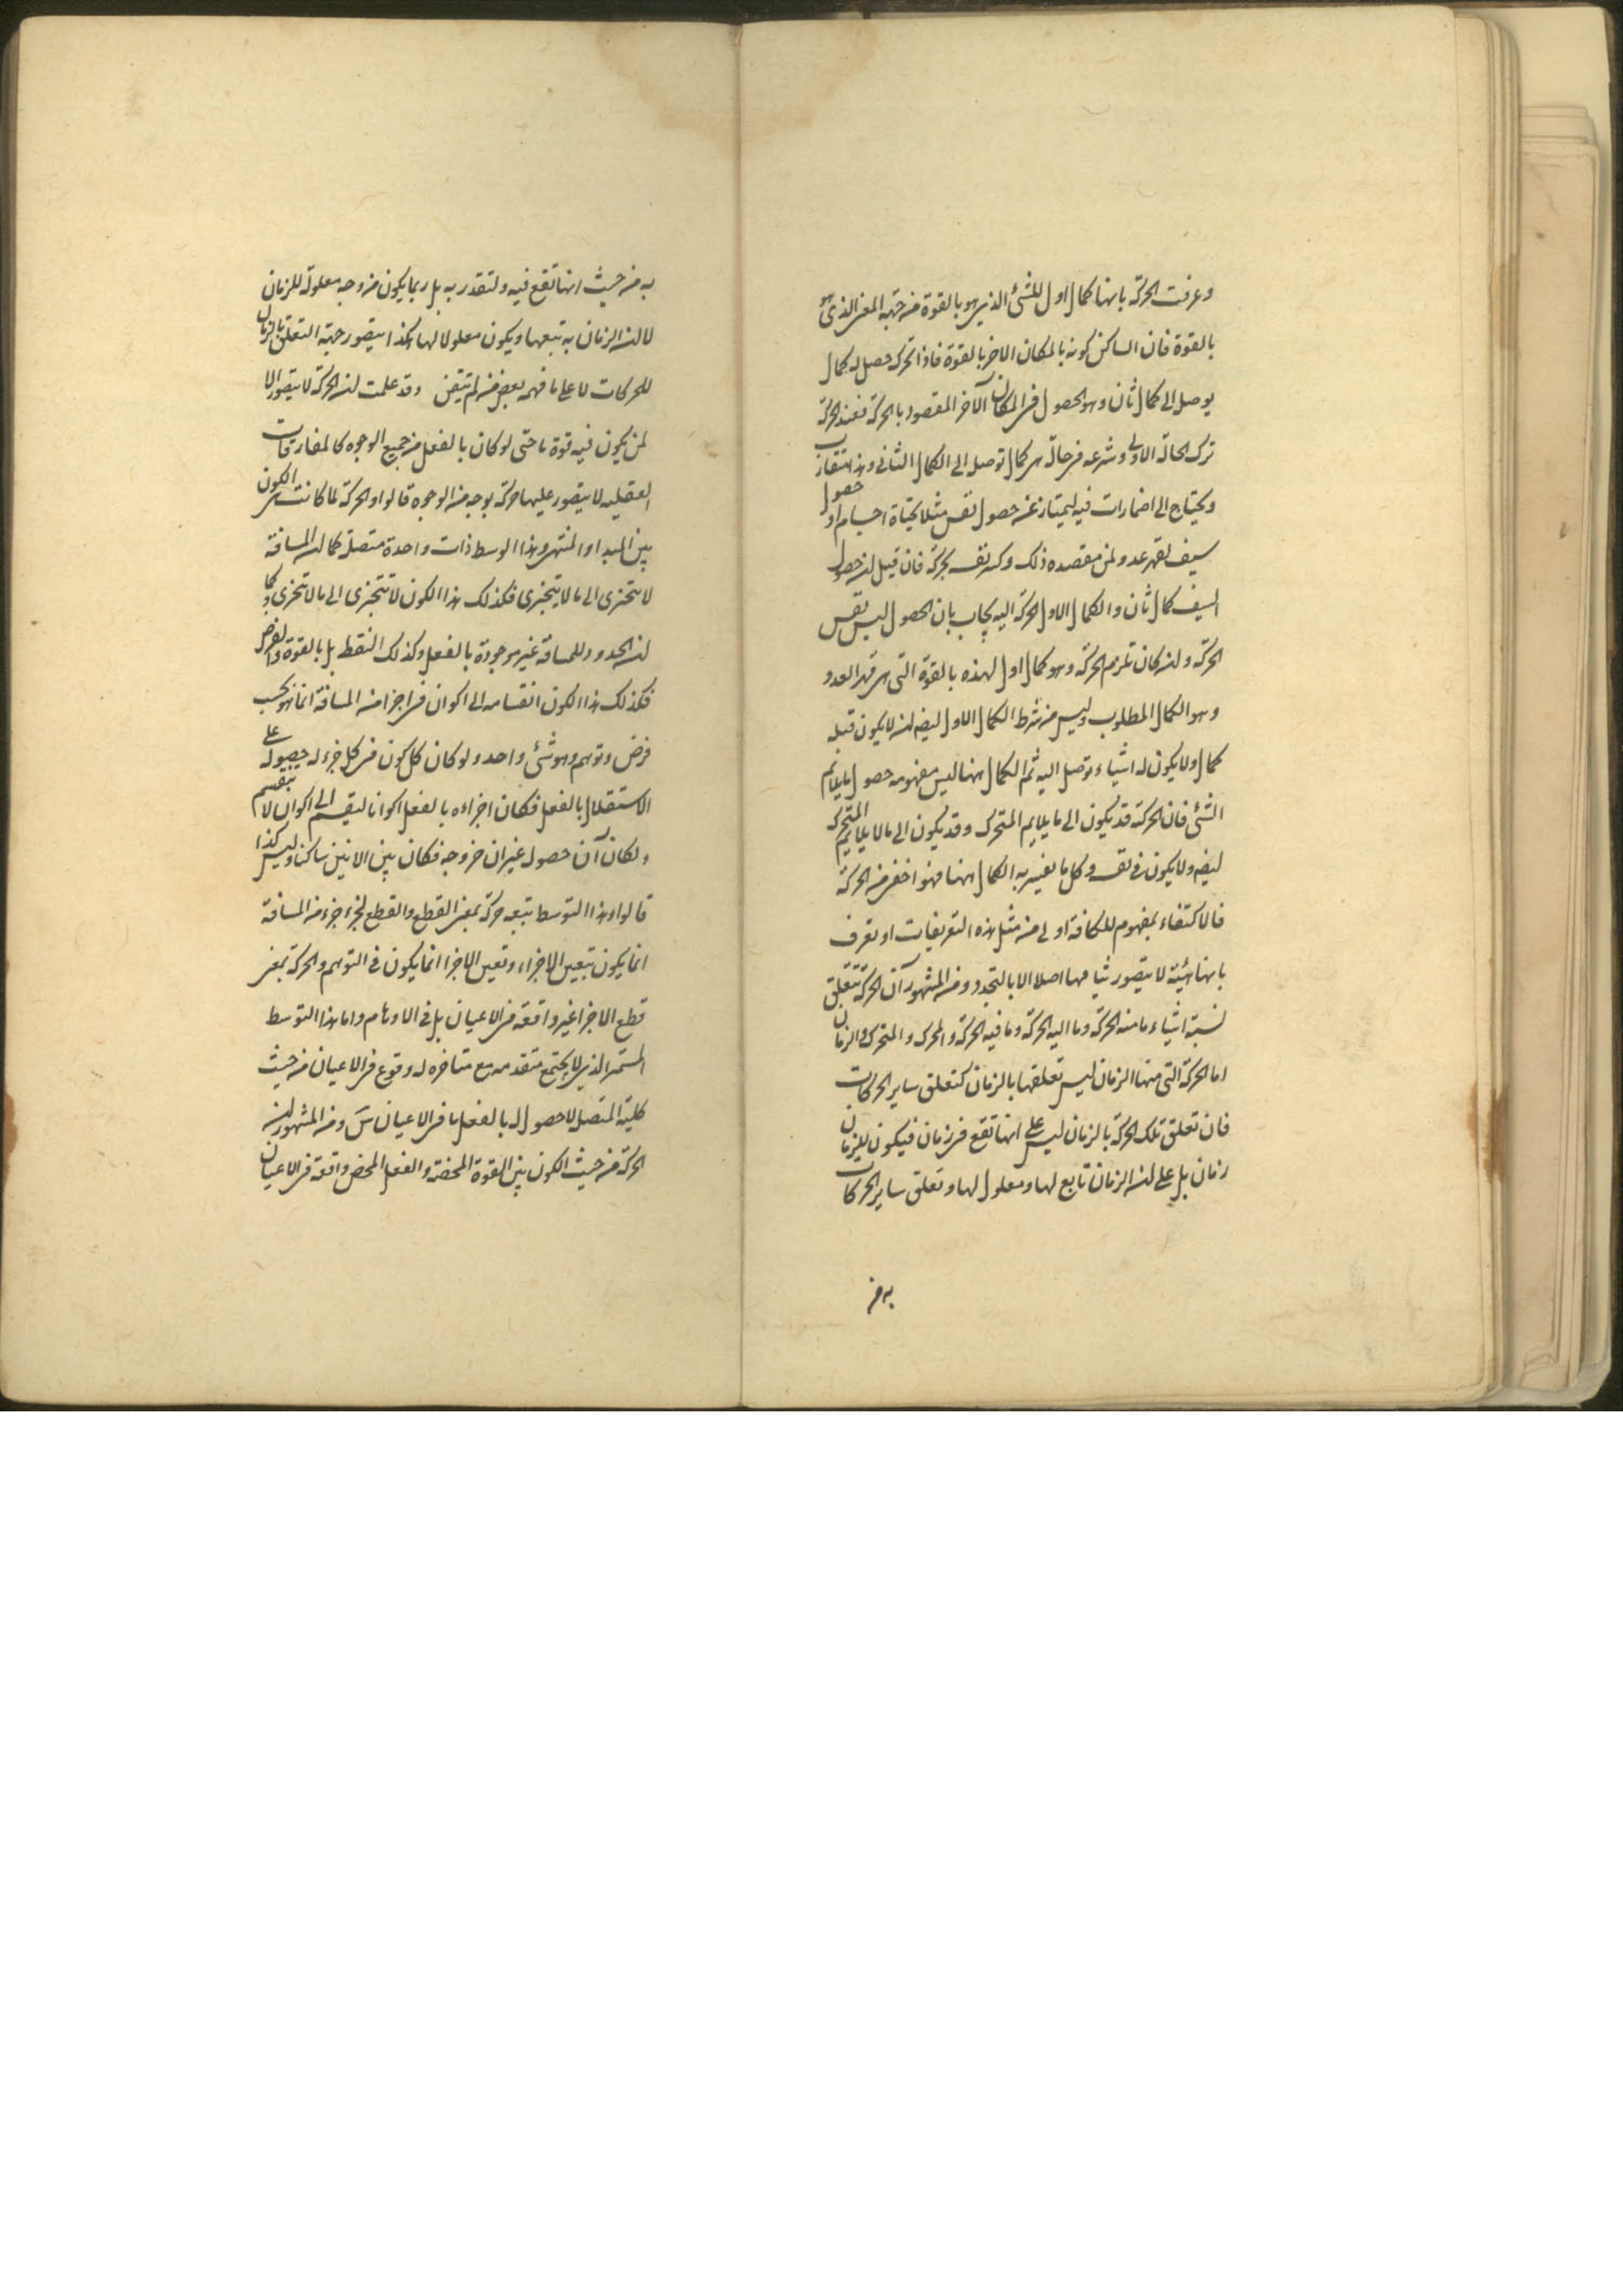 وعرفت الحركة بانها كمال اول للشئ الذى هو بالقوة من جهة المعنى الذى هو
بالقوة فان الساكن كونه بالمكان الاخر بالقوة فاذا تحرك حصل له كمال
يوصل الى كمال ثان وهو الحصول فى المكان الآخر المقصود بالحركة فعند الحركة
ترك الحالة الاولى وشرع فى حالة هى كمال توصل الى الكمال الثانى وهذا متقارب
ويحتاج الى اضمارات فيه ليمتاز عن حصول نفس مثلا بحياة اجسام او حصول
سيف لقهر عدو لمن مقصده ذلك وكل نفسه بحركة فان قيل ان حصول
السيف كمال ثان والكمال الاول الحركة اليه يجاب بان الحصول ليس نفس
الحركة وان كان تلزم الحركة وهو كمال اول لهذه بالقوة التى هى قهر العدو
وهو الكمال المطلوب وليس من شرط الكمال الاول ايضا ان لا يكون قبله
كمال ولا يكون له اشياء توصل اليه ثم الكمال ههنا ليس مفهومه حصول ما يلائم
الشئ فان الحركة قد يكون الى ما يلايم المتحرك وقد يكون الى ما لا يلايم المتحرك
ايضا ولا يكون فى نفسه وكل ما يفسر به الكمال ههنا فهو اخفى من الحركة
فالاكتفاء بمفهوم للكافة اولى من مثل هذه التعريفات او تعرف
بانها هيئة لا يتصور ثباتها اصلا الا بالتجدد ومن المشهور ان الحركة تتعلق
بستة اشياء ما منه الحركة وما اليه الحركة وما فيه الحركة والمحرك والمتحرك والزمان
اما الحركة التى منها الزمان ليس تعلقها بالزمان كتعلق ساير الحركات
فان تعلق تلك الحركة بالزمان ليس على انها تقع فى زمان فيكون للزمان
زمان بل على ان الزمان تابع لها ومعلول لها وتعلق ساير الحركات
به من
به من حيث انها تقع فيه ولتقدر به بل ربما يكون من وجه معلولة للزمان
لا ان الزمان به تبعها ويكون معلولا لها هكذا يتصور جهة التعلق بالزمان
للحركات لا على ما فهمه بعض من لم يتيقن وقد علمت ان الحركة لا يتصور الا
لمن يكون فيه قوة ما حتى لو كان بالفعل من جميع الوجوه كالمفارقات
العقلية لا يتصور عليها حركة بوجه من الوجوه قالوا والحركة لما كانت هى الكون
بين المبدا والمنتهى وهذا الوسط ذات واحدة متصلة كما ان المسافة
لا تتجزى الى ما لا يتجزى فكذلك هذا الكون لا تتجزى الى ما لا تتجزى وكما
ان الحدود للمسافة غير موجودة بالفعل وكذلك النقط بل بالقوة والفرض
فكذلك هذا الكون انقسامه الى اكوان فى اجزا من المسافة انما هو بحسب
فرض وتوهم وهو شئ واحد ولو كان كل كون فى كل جزء له حصوله على
الاستقلال بالفعل فكان اجزاءه بالفعل اكوانا لينقسم الى اكوان لا ينقسم
ولكان آن حصوله غير ان خروجه فكان بين الانين ساكنا وليس كذا
قالوا وهذا التوسط تتبعه حركة بمعنى القطع والقطع لجزء جزء من المسافة
انما يكون بتعين الاجزاء وتعين الاجزا انما يكون فى التوهم والحركة بمعنى
قطع الاجزا غير واقعة فى الاعيان بل فى الاوهام واما هذا التوسط
المستمر الذى لا يجتمع متقدمه مع متاخره له وقوع فى الاعيان من حيث
كلية المتصل لا حصول له بالفعل ما فى الاعيان ومن المشهور ان
الحركة من حيث الكون بين القوة المحضة والفعل المحض واقعة فى الاعيان